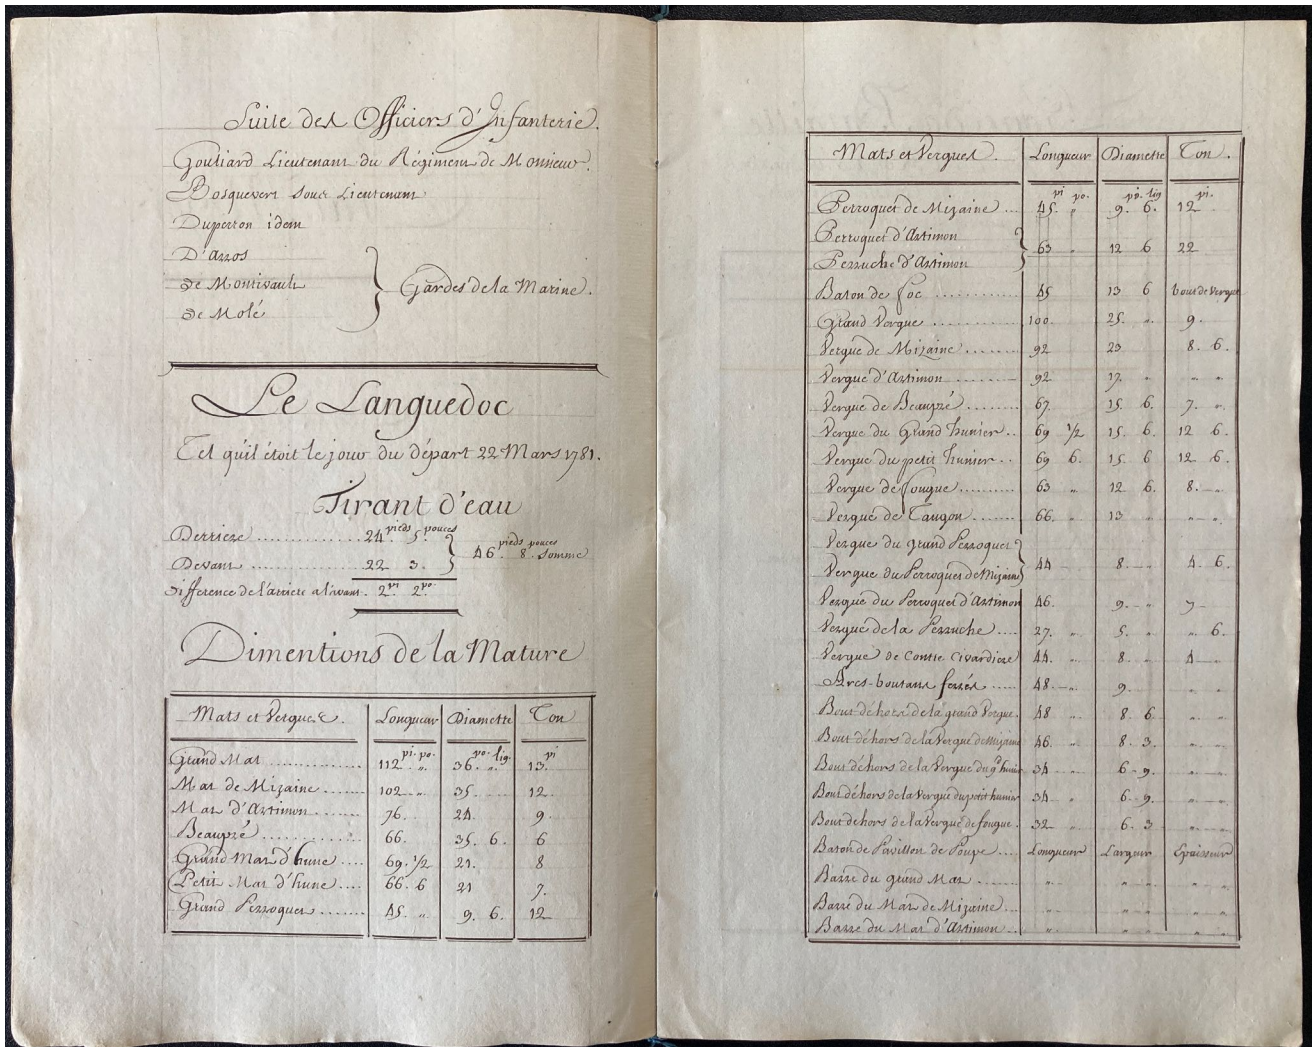 Suite des Officiers d'Infanterie.
Gouliard Lieutenant du Régiment de Monsieur.
Bosquevert Sous Lieutenant
Duperron idem
D'arros
de Montivault
de Molé
Gardes de la Marine.
Le Languedoc
Tel qu'il étoit le jour du départ 22 Mars 1781.
Tirant d'eau
Derriere ............ 24 pieds 5. pouces
Devant ............ 22 3.
46 pieds 8 pouces somme
difference de l'arriere a l'avant. 2 pi 2 po.
Dimentions de la Mature
Mats et Vergues. Longueur Diamettre Ton
Grand Mat ............ 112 pi. „ po. 36 po. „ lig. 13 pi
Mat de Mizaine ....... 102 „ 35 12
Mat d'Artimon ....... 76. 24 9
Beaupré ............ 66. 35. 6. 6
Grand Mat d'hune .... 69. 1/2 21. 8
Petit Mat d'hune .... 66. 6 21 7.
Grand Perroquet ....... 45. „ 9. 6. 12
Mats et Vergues. Longueur Diamettre Ton.
Perroquet de Mizaine ... 45. pi „ po. 9. po. 6. lig 12 pi.
Perroquet d'Artimon
Perruche d'Artimon
63 „ 12 6 22
Baton de foc ............ 45 13 6 bout de vergue
Grand Vergue ............ 100. 25. „ 9.
Vergue de Mizaine ....... 92 23 8. 6.
Vergue d'Artimon ......... 92 17. „ „ „
Vergue de Beaupré ....... 67. 15. 6. 7. „
Vergue du Grand hunier .. 69 1/2 15. 6. 12 6.
Vergue du petit hunier .. 69 6. 15. 6 12 6.
Vergue de fougue ......... 63 „ 12 6. 8. „
Vergue de Tangon ....... 66. „ 13 „ „ „
Vergue du grand Perroquet
Vergue du Perroquet de Mizaine
44 „ 8. „ 4. 6.
Vergue du Perroquet d'Artimon 46. 9. „ 7
Vergue de la Perruche .... 27. „ 5. „ „ 6.
Vergue de contre civardiere 44. „ 8. „ 4 „
Arcs-boutans ferrés ..... 48 „ 9. „ „
Bout déhors de la grand Vergue. 48 „ 8. 6. „ „
Bout déhors de la Vergue de Mizaine 46. „ 8. 3. „ „
Bout déhors de la Vergue du gd hunier 34 „ 6. 9. „ „
Bout déhors de la Vergue du petit hunier 34 „ 6. 9. „ „
Bout de hors de la Vergue de fougue. 32 „ 6. 3 „ „
Baton de Pavillon de Poupe .... Longueur Largeur Epaisseur
Barre du grand Mat ....... „ „ „ „ „
Barre du Mat de Mizaine ... „ „ „ „ „
Barre du Mat d'Artimon ... „ „ „ „ „